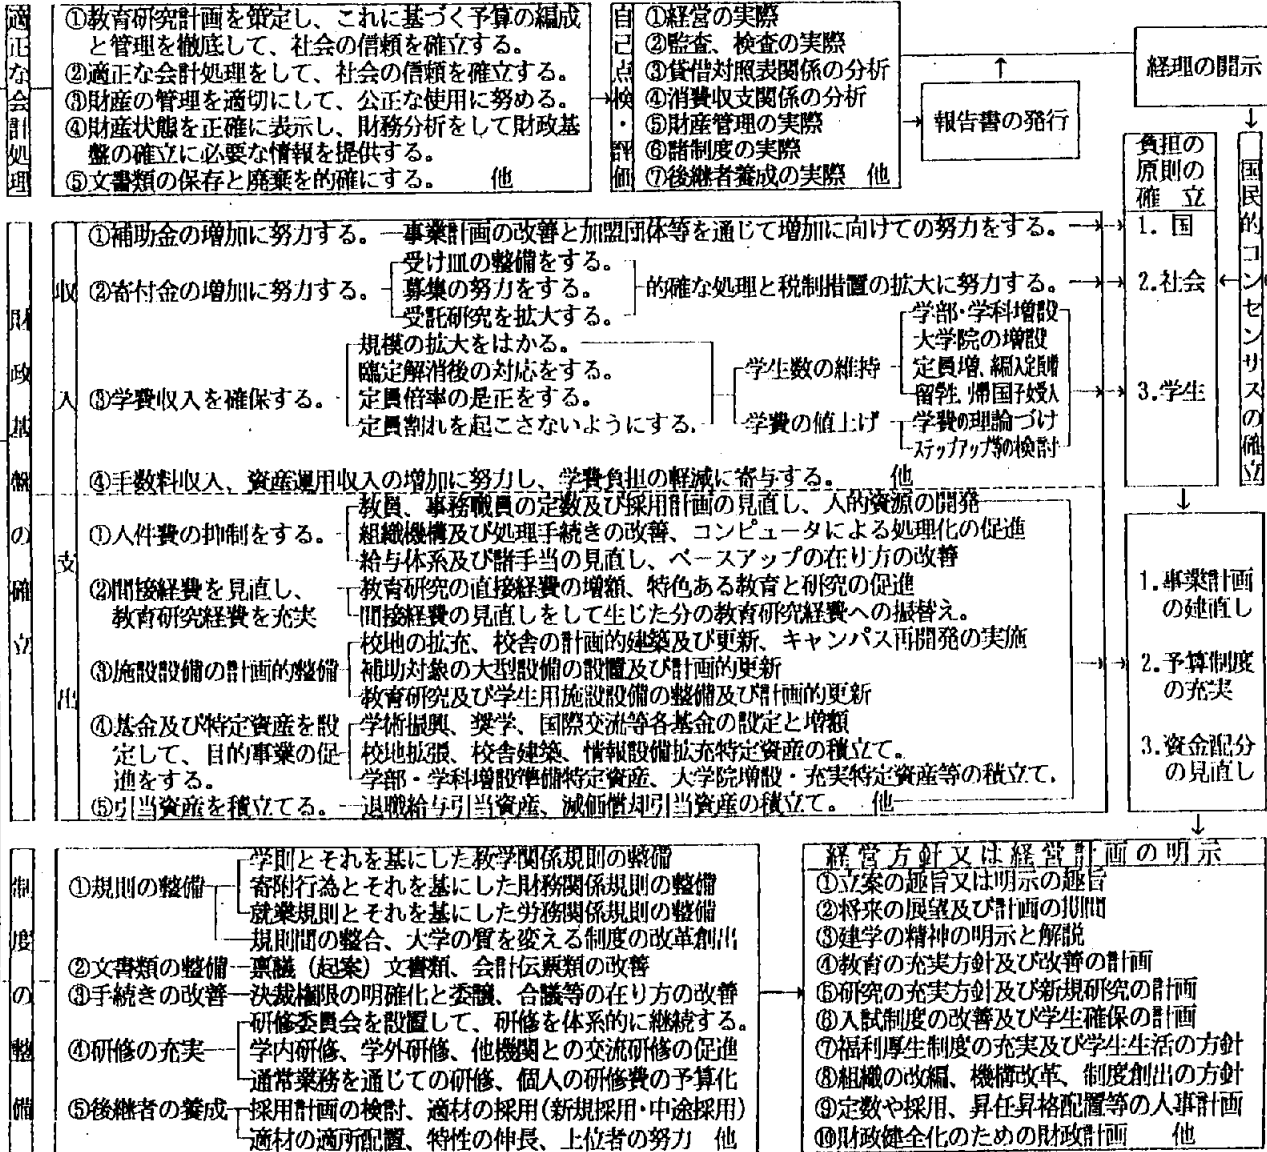 適正な会計処理
①教育研究計画を策定し、これに基づく予算の編成
と管理を徹底して、社会の信頼を確立する。
②適正な会計処理をして、社会の信頼を確立する。
③財産の管理を適切にして、公正な使用に努める。
④財産状態を正確に表示し、財務分析をして財政基
盤の確立に必要な情報を提供する。
⑤文書類の保存と廃棄を的確にする。 他
自己点検・評価
①経営の実際
②監査、検査の実際
③貸借対照表関係の分析
④消費収支関係の分析
⑤財産管理の実際
⑥諸制度の実際
⑦後継者養成の実際 他
報告書の発行
経理の開示
国民的コンセンサスの確立
負担の
原則の
確 立
1. 国
2.社会
3.学生
財政基盤の確立
収入
①補助金の増加に努力する。
事業計画の改善と加盟団体等を通じて増加に向けての努力をする。
②寄付金の増加に努力する。
受け皿の整備をする。
募集の努力をする。
受託研究を拡大する。
的確な処理と税制措置の拡大に努力する。
③学費収入を確保する。
規模の拡大をはかる。
臨定解消後の対応をする。
定員倍率の是正をする。
定員割れを起こさないようにする.
学生数の維持
学部・学科増設
大学院の増設
定員増、編入定員増
留学生、帰国子女受入
学費の値上げ
学費の理論づけ
ステップアップ等の検討
④手数料収入、資産運用収入の増加に努力し、学費負担の軽減に寄与する。 他
支出
①人件費の抑制をする。
教員、事務職員の定数及び採用計画の見直し、人的資源の開発
組織機構及び処理手続きの改善、コンピュータによる処理化の促進
給与体系及び諸手当の見直し、ベースアップの在り方の改善
②間接経費を見直し、
教育研究経費を充実
教育研究の直接経費の増額、特色ある教育と研究の促進
間接経費の見直しをして生じた分の教育研究経費への振替え。
③施設設備の計画的整備
校地の拡充、校舎の計画的建築及び更新、キャンパス再開発の実施
補助対象の大型設備の設置及び計画的更新
教育研究及び学生用施設設備の整備及び計画的更新
④基金及び特定資産を設
定して、目的事業の促
進をする。
学術振興、奨学、国際交流等各基金の設定と増額
校地拡張、校舎建築、情報設備拡充特定資産の積立て。
学部・学科増設準備特定資産、大学院増設・充実特定資産等の積立て.
⑤引当資産を積立てる。
退職給与引当資産、減価償却引当資産の積立て。 他
1.事業計画
の建直し
2.予算制度
の充実
3.資金配分
の見直し
制度の整備
①規則の整備
学則とそれを基にした教学関係規則の整備
寄附行為とそれを基にした財務関係規則の整備
就業規則とそれを基にした労務関係規則の整備
規則間の整合、大学の質を変える制度の改革創出
②文書類の整備
稟議（起案）文書類、会計伝票類の改善
③手続きの改善
決裁権限の明確化と委譲、合議等の在り方の改善
④研修の充実
研修委員会を設置して、研修を体系的に継続する。
学内研修、学外研修、他機関との交流研修の促進
通常業務を通じての研修、個人の研修費の予算化
⑤後継者の養成
採用計画の検討、適材の採用(新規採用・中途採用)
適材の適所配置、特性の伸長、上位者の努力 他
経営方針又は経営計画の明示
①立案の趣旨又は明示の趣旨
②将来の展望及び計画の期間
③建学の精神の明示と解説
④教育の充実方針及び改善の計画
⑤研究の充実方針及び新規研究の計画
⑥入試制度の改善及び学生確保の計画
⑦福利厚生制度の充実及び学生生活の方針
⑧組織の改編、機構改革、制度創出の方針
⑨定数や採用、昇任昇格配置等の人事計画
⑩財政健全化のための財政計画 他